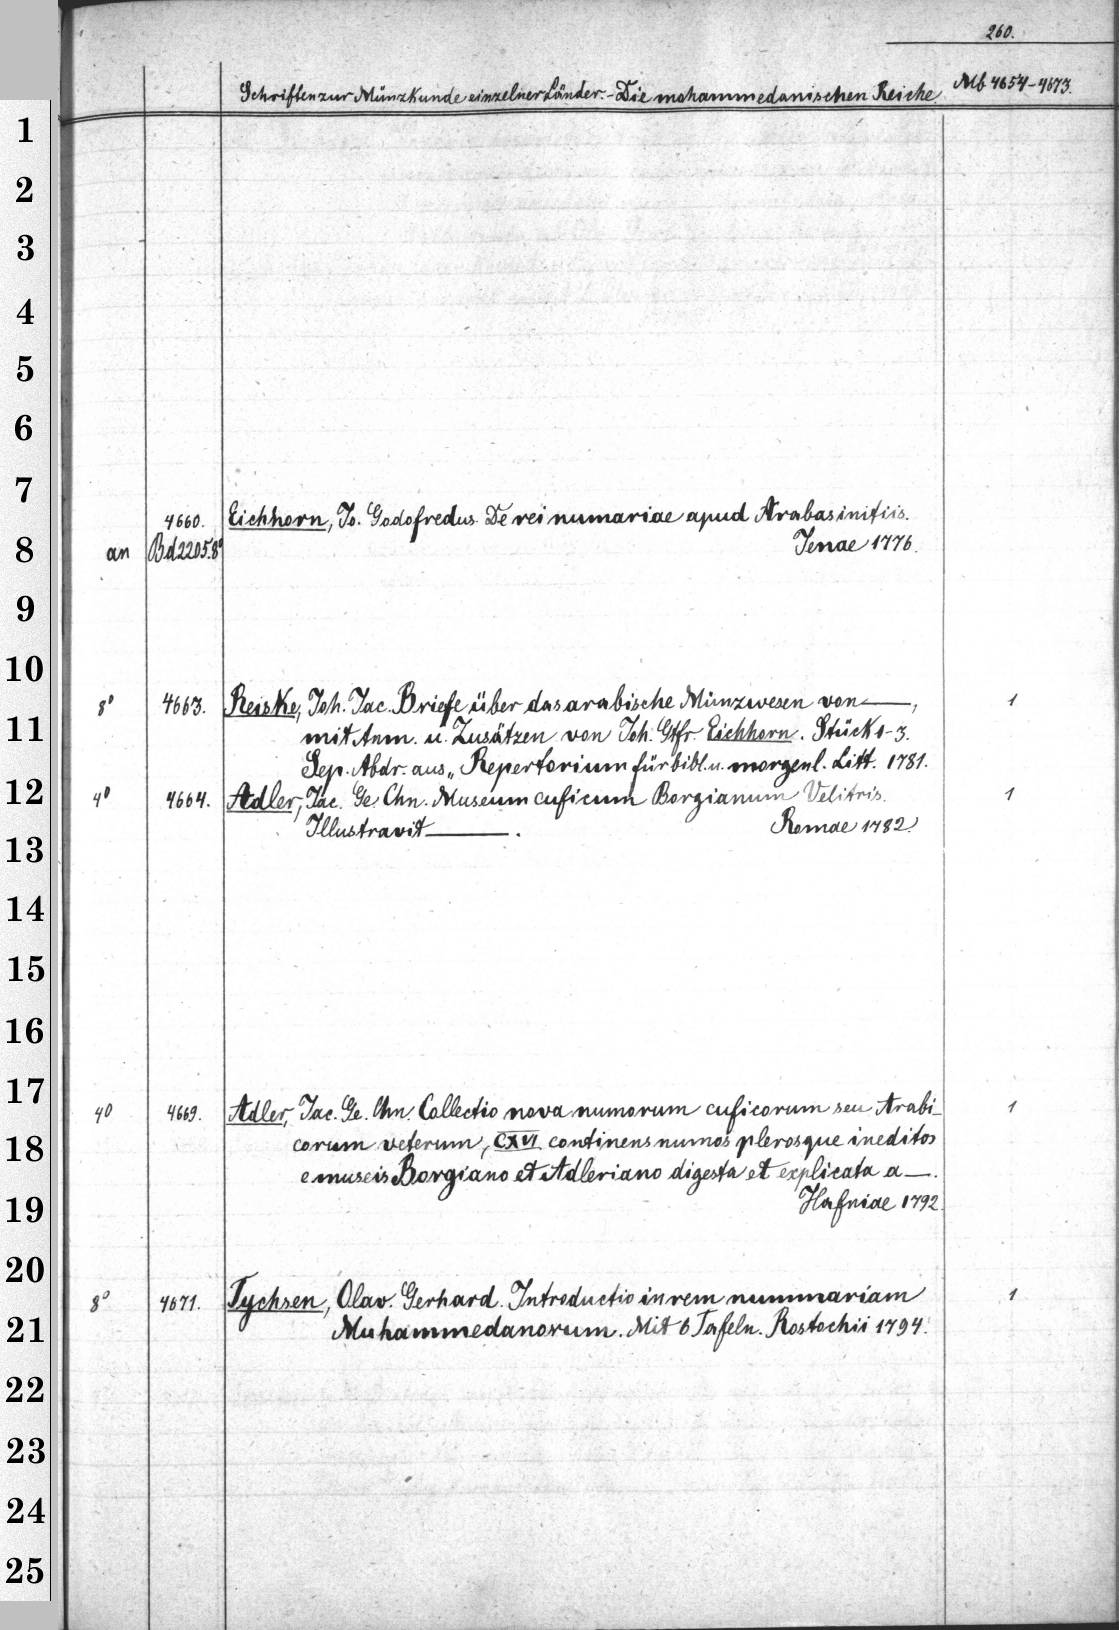 260.
Schriften zur Münzkunde einzelner Länder. - Die mohammedanischen Reiche. Mb 4654-4673.
1
2
3
4
5
6
7
4660. Eichhorn, Jo. Godofredus. De rei numariae apud Arabas initiis.
8 an Bd 2205.8° Jenae 1776.
9
10
8° 4663. Reiske, Joh. Jac. Briefe über das arabische Münzwesen von —, 1
11 mit Anm. u. Zusätzen von Joh. Gtfr. Eichhorn. Stück 1-3.
Sep. Abdr. aus „Repertorium für bibl. u. morgenl. Litt. 1781.
12 4° 4664. Adler, Jac. Ge. Chn. Museum cuficum Borgianum Velitris. 1
Illustravit —. Romae 1782.
13
14
15
16
17
4° 4669. Adler, Jac. Ge. Chn. Collectio nova numorum cuficorum seu Arabi- 1
18 corum veterum, CXVI continens numos plerosque ineditos
e museis Borgiano et Adleriano digesta et explicata a —.
19 Hafniae 1792.
20
8° 4671. Tychsen, Olav. Gerhard. Introductio in rem nummariam 1
21 Muhammedanorum. Mit 6 Tafeln. Rostochii 1794.
22
23
24
25